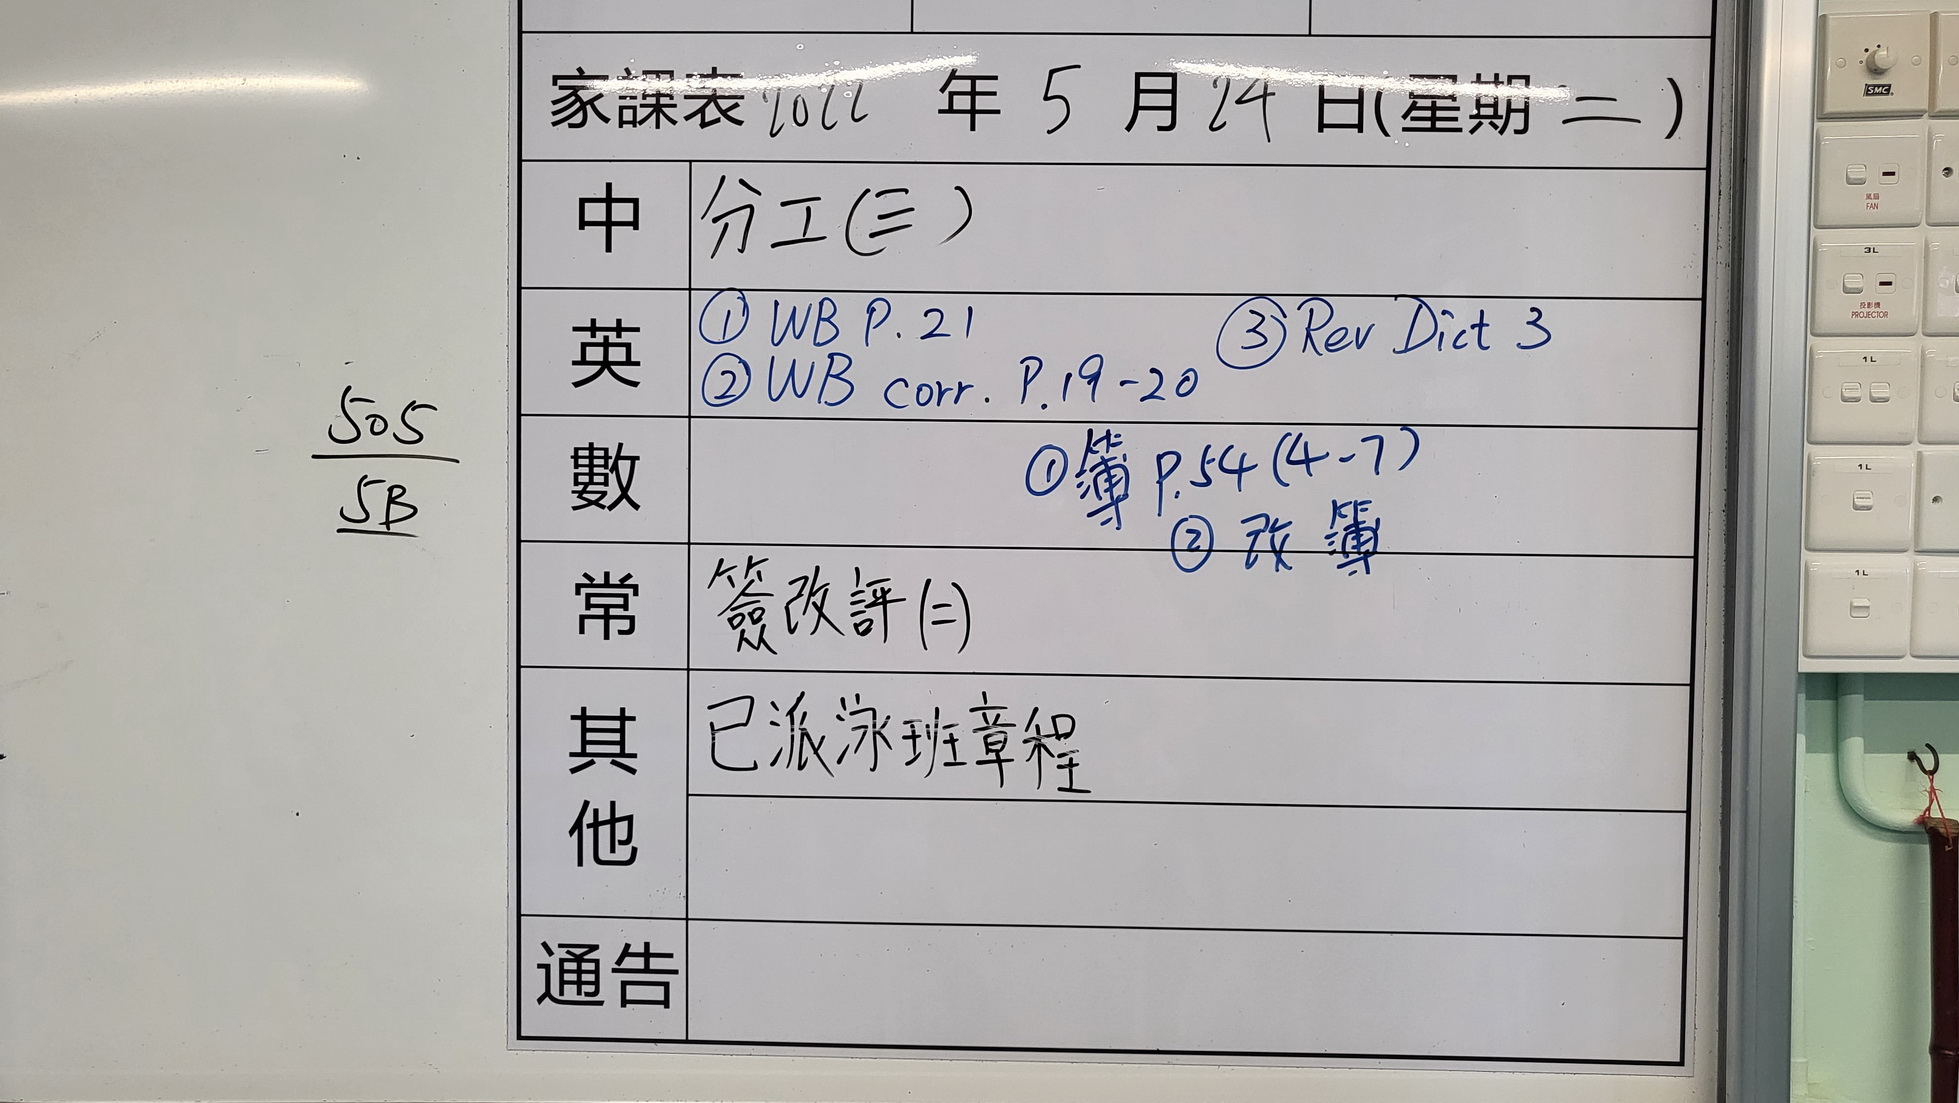 家課表 2022 年 5 月 24 日(星期 二 )
中 分工(三)
英 ① WB P.21 ③ Rev Dict 3
② WB corr. P.19-20
數 ① 簿 P.54 (4-7)
② 改 簿
常 簽改評(二)
其他 已派泳班章程
通告
505
5B
SMC
風扇
FAN
3L
投影機
PROJECTOR
1L
1L
1L